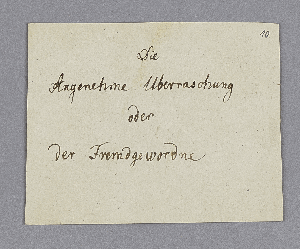 10
Die
Angenehme Uberraschung
oder
der Fremdgewordne